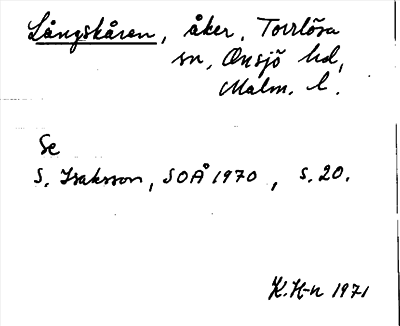 Långskåren, åker, Torrlösa
sn, Onsjö hd,
Malm. l.
Se
S. Isaksson, SOÅ 1970, s. 20.
K. H-n 1971